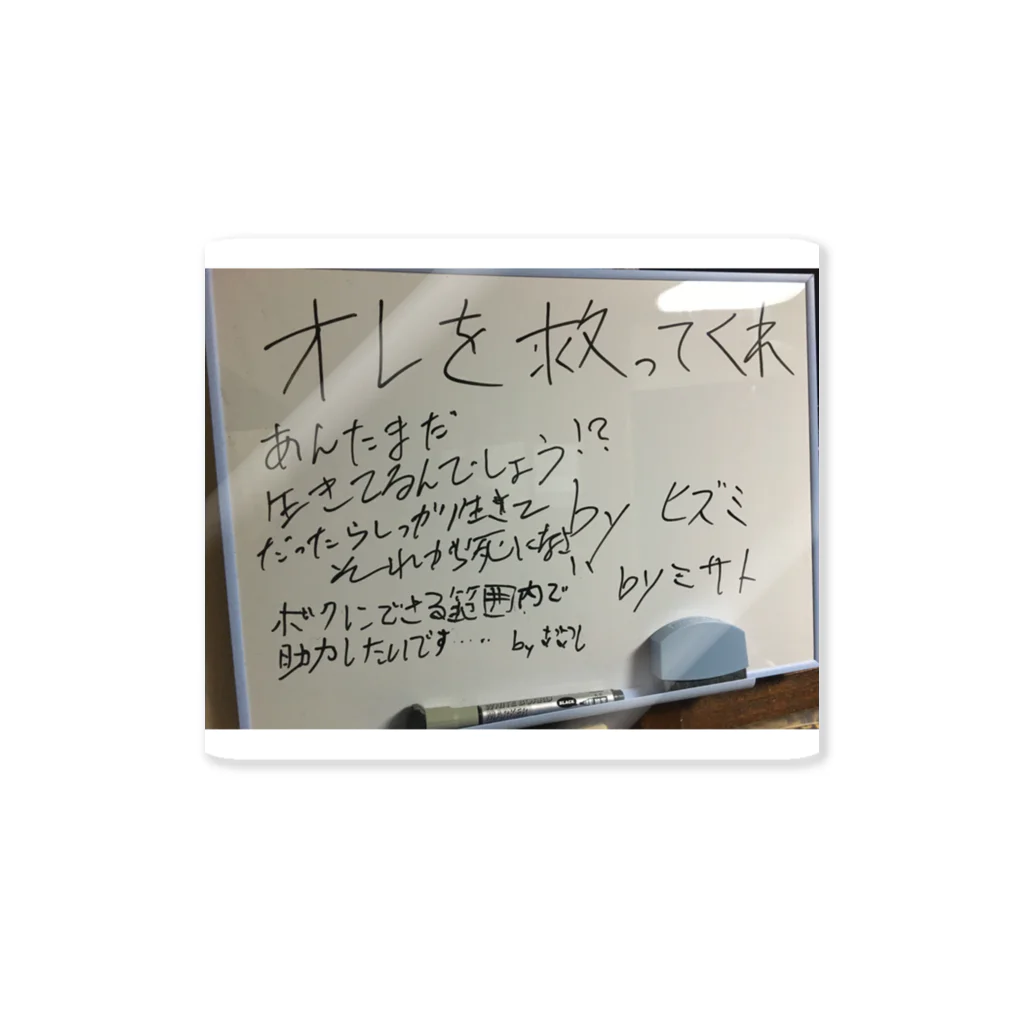 オレを救ってくれ
by ヒズミ
あんたまだ
生きてるんでしょう!?
だったらしっかり生きて
それから死になさい!
by ミサト
ボクにできる範囲内で
助力したいです....
by
WHITE BOARD
MARKER
BLACK